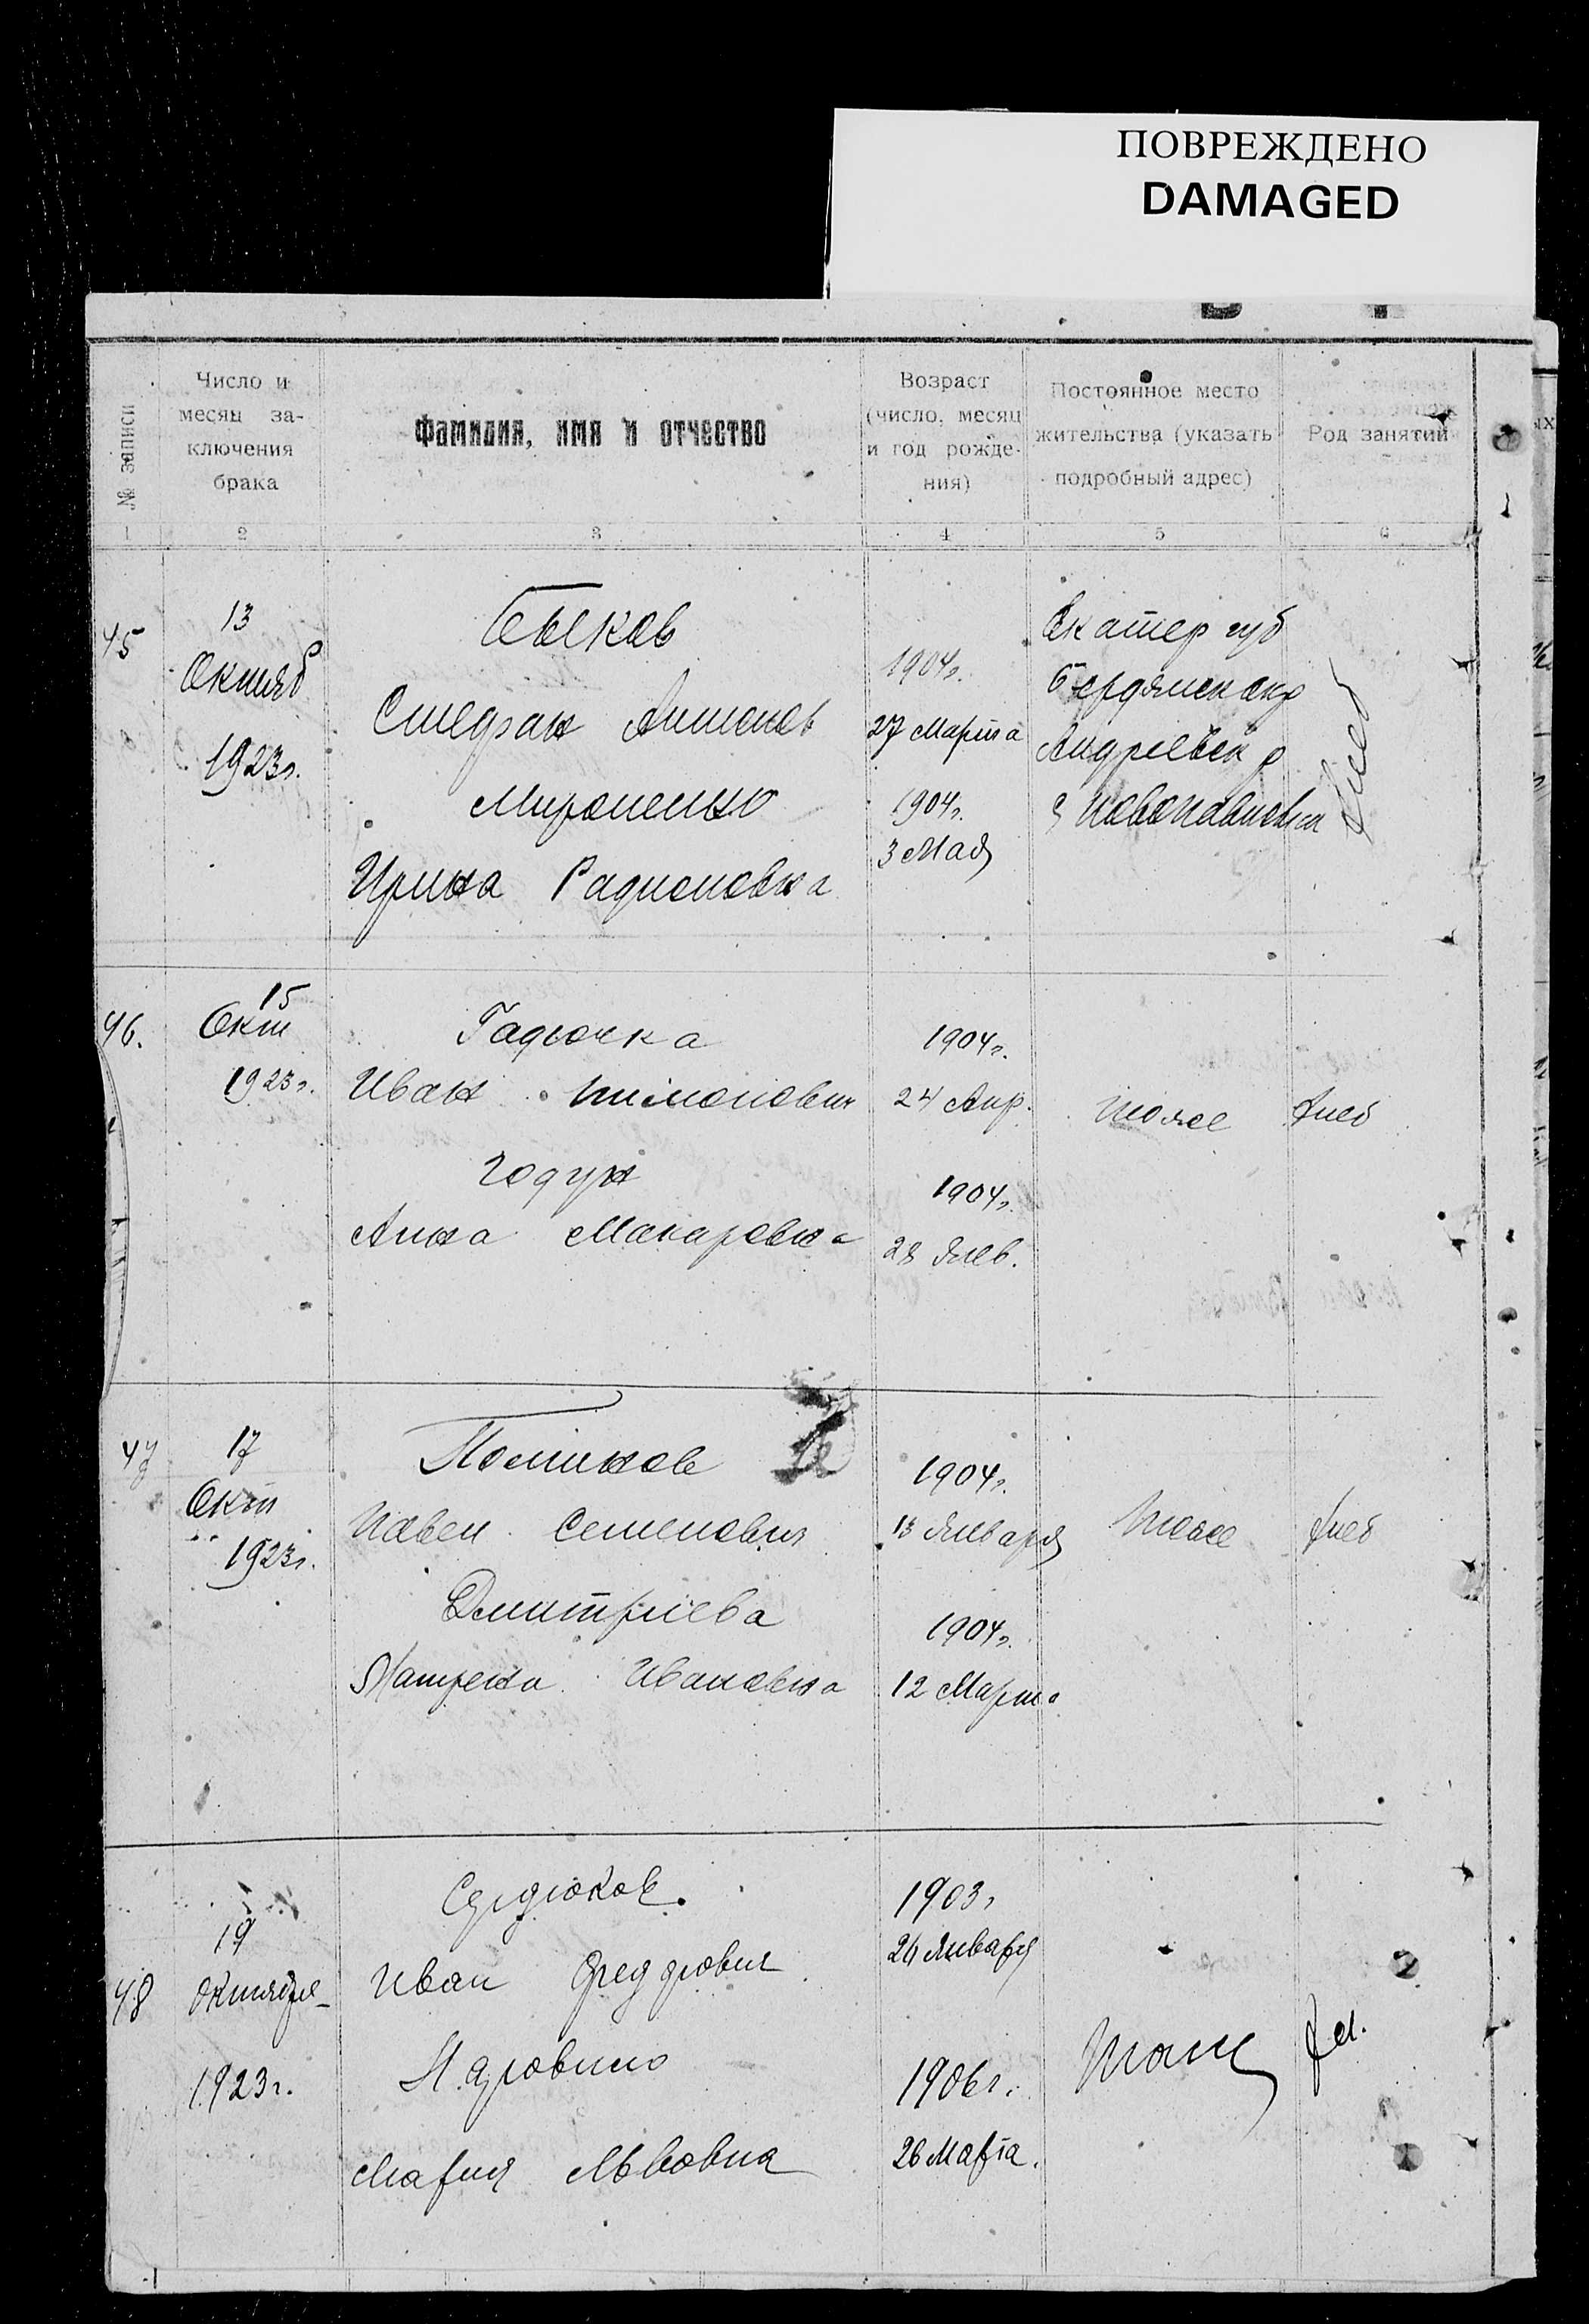 ПОВРЕЖДЕНО
DAMAGED
№ записи
Число и месяц за-ключения брака
Фамилия, имя и отчество
Возраст (число, месяц и год рожде-ния)
Постоянное место жительства (указать подробный адрес)
Род занятий
1 2 3 4 5 6
45
13
Октяб
1923г.
Быков
Стефан Антонов
Мироненко
Ирина Радионовна
1904г.
27 Марта
1904г.
3 Мая
Екатер губ
Бердянск окр
Андреевск р
с Новопавловка
хлеб
46.
15
Окт
1923г.
Гадючка
Иван Тимонович
Годун
Анна Макаровна
1904г.
24 Апр.
1904г.
28 Янв.
тоже
хлеб
47
17
Окт
1923г.
Постников
Павел Семенович
Дмитриева
Матрена Ивановна
1904г.
13 Января
1904г.
12 Марта
тоже
хлеб
48
19
Октября
1923г.
Сердюков.
Иван Федорович
Мария Львовна
1903г
26 Января
1906г.
26 Марта.